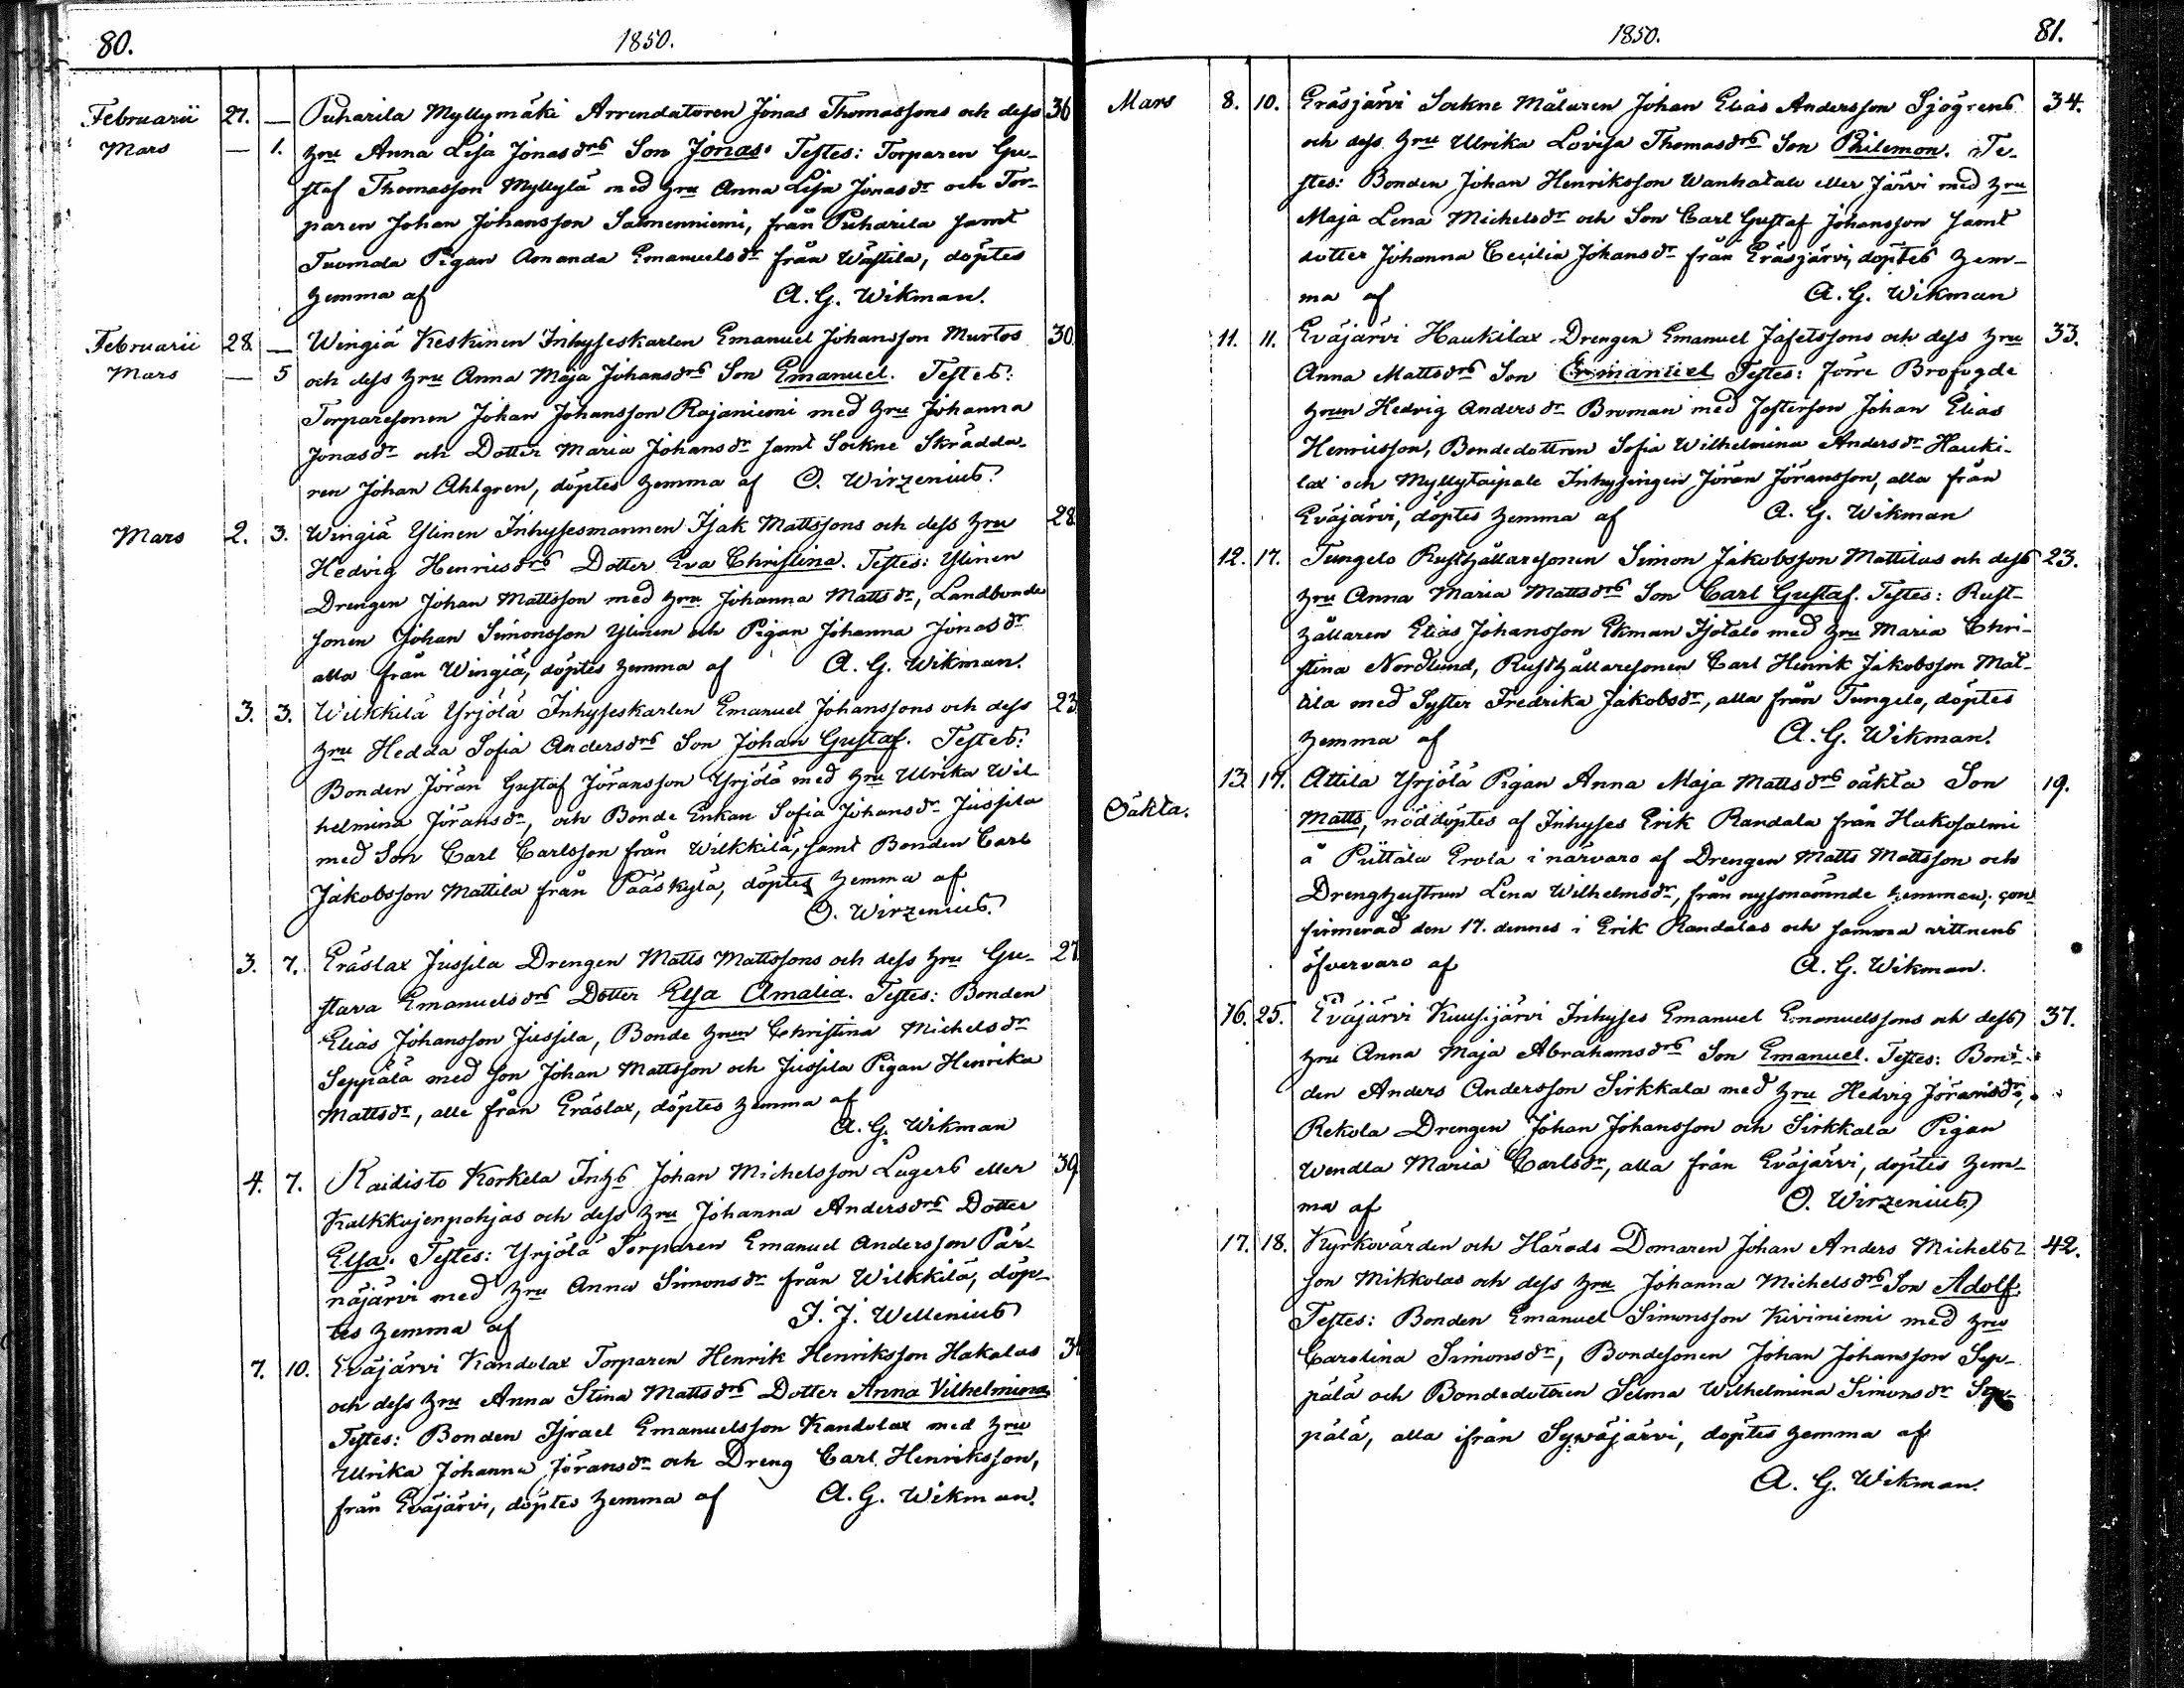 80.
1850.
Februarii 27. — Puharila Myllymäki Arrendatoren Jonas Thomassons och dess 36
Mars — 1. hru Anna Lisa Jonasdrs Son Jonas. Testes: Torparen Gu-
staf Thomasson Myllylä med hru Anna Lisa Jonasdr och Tor-
paren Johan Johansson Salmenniemi, från Puharila samt
Tuomola Pigan Amanda Emanuelsdr från Wästila, döptes
hemma af A. G. Wikman.
Februarii 28. — Wingiä Keskinen Inhyseskarlen Emanuel Johansson Murtos 30.
Mars — 5 och dess hru Anna Maja Johansdrs Son Emanuel. Testes:
Torparesonen Johan Johansson Rajaniemi med hru Johanna
Jonasdr och Dotter Maria Johansdr samt Sockne Skrädda-
ren Johan Ahlgren, döptes hemma af O. Wirzenius.
Mars 2. 3. Wingiä Ylinen Inhysesmannen Isak Mattssons och dess hru 28.
Hedvig Henricsdrs Dotter Eva Christina. Testes: Ylinen
Drengen Johan Mattsson med hru Johanna Mattsdr, Landbonde
sonen Johan Simonsson Ylinen och Pigan Johanna Jonasdr
alla från Wingiä, döptes hemma af A. G. Wikman.
3. 3. Wilkkilä Yrjölä Inhyseskarlen Emanuel Johanssons och dess 23
hru Hedda Sofia Andersdrs Son Johan Gustaf. Testes:
Bonden Jöran Gustaf Jöransson Yrjölä med hru Ulrika Wil-
helmina Jöransdr, och Bonde Enkan Sofia Johansdr Jussila
med Son Carl Carlsson från Wilkkilä, samt Bonden Carl
Jakobsson Mattila från Pääskylä, döptes hemma af
O. Wirzenius.
3. 7. Eräslax Jussila Drengen Matts Mattssons och dess hru Gu- 27
stava Emanuelsdrs Dotter Elsa Amalia. Testes: Bonden
Elias Johansson Jussila, Bonde hrun Christina Michelsdr
Seppälä med son Johan Mattsson och Jussila Pigan Henrika
Mattsdr, alle från Eräslax, döptes hemma af
A. G. Wikman
4. 7. Raidisto Korkela Inhs Johan Michelsson Lagers eller 39
Kalkkujenpohjas och dess hru Johanna Andersdrs Dotter
Elsa. Testes: Yrjölä Torparen Emanuel Andersson Pär-
näjärvi med hru Anna Simonsdr från Wilkkilä, döp-
tes hemma af J. J. Wellenius
7. 10. Eväjärvi Kandolax Torparen Henrik Henriksson Hakalas
och dess hru Anna Stina Mattsdrs Dotter Anna Vilhelmina
Testes: Bonden Israel Emanuelsson Kandolax med hru
Ulrika Johanna Jöransdr och Dreng Carl Henriksson,
från Eväjärvi, döptes hemma af A. G. Wikman.
1850.
81.
Mars 8. 10. Eräsjärvi Sockne Målaren Johan Elias Andersson Sjögrens 34.
och dess hru Ulrika Lovisa Thomasdrs Son Philemon. Te-
stes: Bonden Johan Henriksson Wanhatalo eller Järvi med hru
Maja Lena Michelsdr och Son Carl Gustaf Johansson samt
dotter Johanna Cecilia Johansdr från Eräsjärvi, döptes hem-
ma af A. G. Wikman
11. 11. Eväjärvi Haukilax Drengen Emanuel Jafetssons och dess hru 33.
Anna Mattsdrs Son Emanuel Testes: förre Brofogde
hrun Hedvig Andersdr Broman med fosterson Johan Elias
Henricsson, Bondedottren Sofia Wilhelmina Andersdr Hauki-
lax och Myllytaipale Inhysingen Jöran Jöransson, alla från
Eväjärvi, döptes hemma af A. G. Wikman
12. 17. Tungelo Rusthållaresonen Simon Jakobsson Mattilas och dess 23.
hru Anna Maria Mattsdrs Son Carl Gustaf. Testes: Rust-
hållaren Elias Johansson Ekman Isotalo med hru Maria Chri-
stina Nordlund, Rusthållaresonen Carl Henrik Jakobsson Mat-
tila med Syster Fredrika Jakobsdr, alla från Tungelo, döptes
hemma af A. G. Wikman.
13. 17. Attila Yrjölä Pigan Anna Maja Mattsdrs oäkta Son 19.
Oäkta.
Matts, nöddöptes af Inhyses Erik Randala från Hakosalmi
å Püttälä Erola i närvaro af Drengen Matts Mattsson och
Drenghustrun Lena Wilhelmsdr, från nyssnämnde hemman, con-
firmerad den 17. dennes i Erik Randalas och samma vittnens
öfvervaro af A. G. Wikman.
16. 25. Eväjärvi Kuusijärvi Inhyses Emanuel Emanuelssons och dess 37.
hru Anna Maja Abrahamsdrs Son Emanuel. Testes: Bon-
den Anders Andersson Sirkkala med hru Hedvig Jöransdr,
Rekola Drengen Johan Johansson och Sirkkala Pigan
Wendla Maria Carlsdr, alla från Eväjärvi, döptes hem-
ma af O. Wirzenius
17. 18. Kyrkovärden och Härads Domaren Johan Anders Michels- 42.
son Mikkolas och dess hru Johanna Michelsdrs Son Adolf.
Testes: Bonden Emanuel Simonsson Kiviniemi med hru
Carolina Simonsdr, Bondesonen Johan Johansson Sep-
pälä och Bondedottren Selma Wilhelmina Simonsdr Sep-
pälä, alla ifrån Sywäjärvi, döptes hemma af
A. G. Wikman.